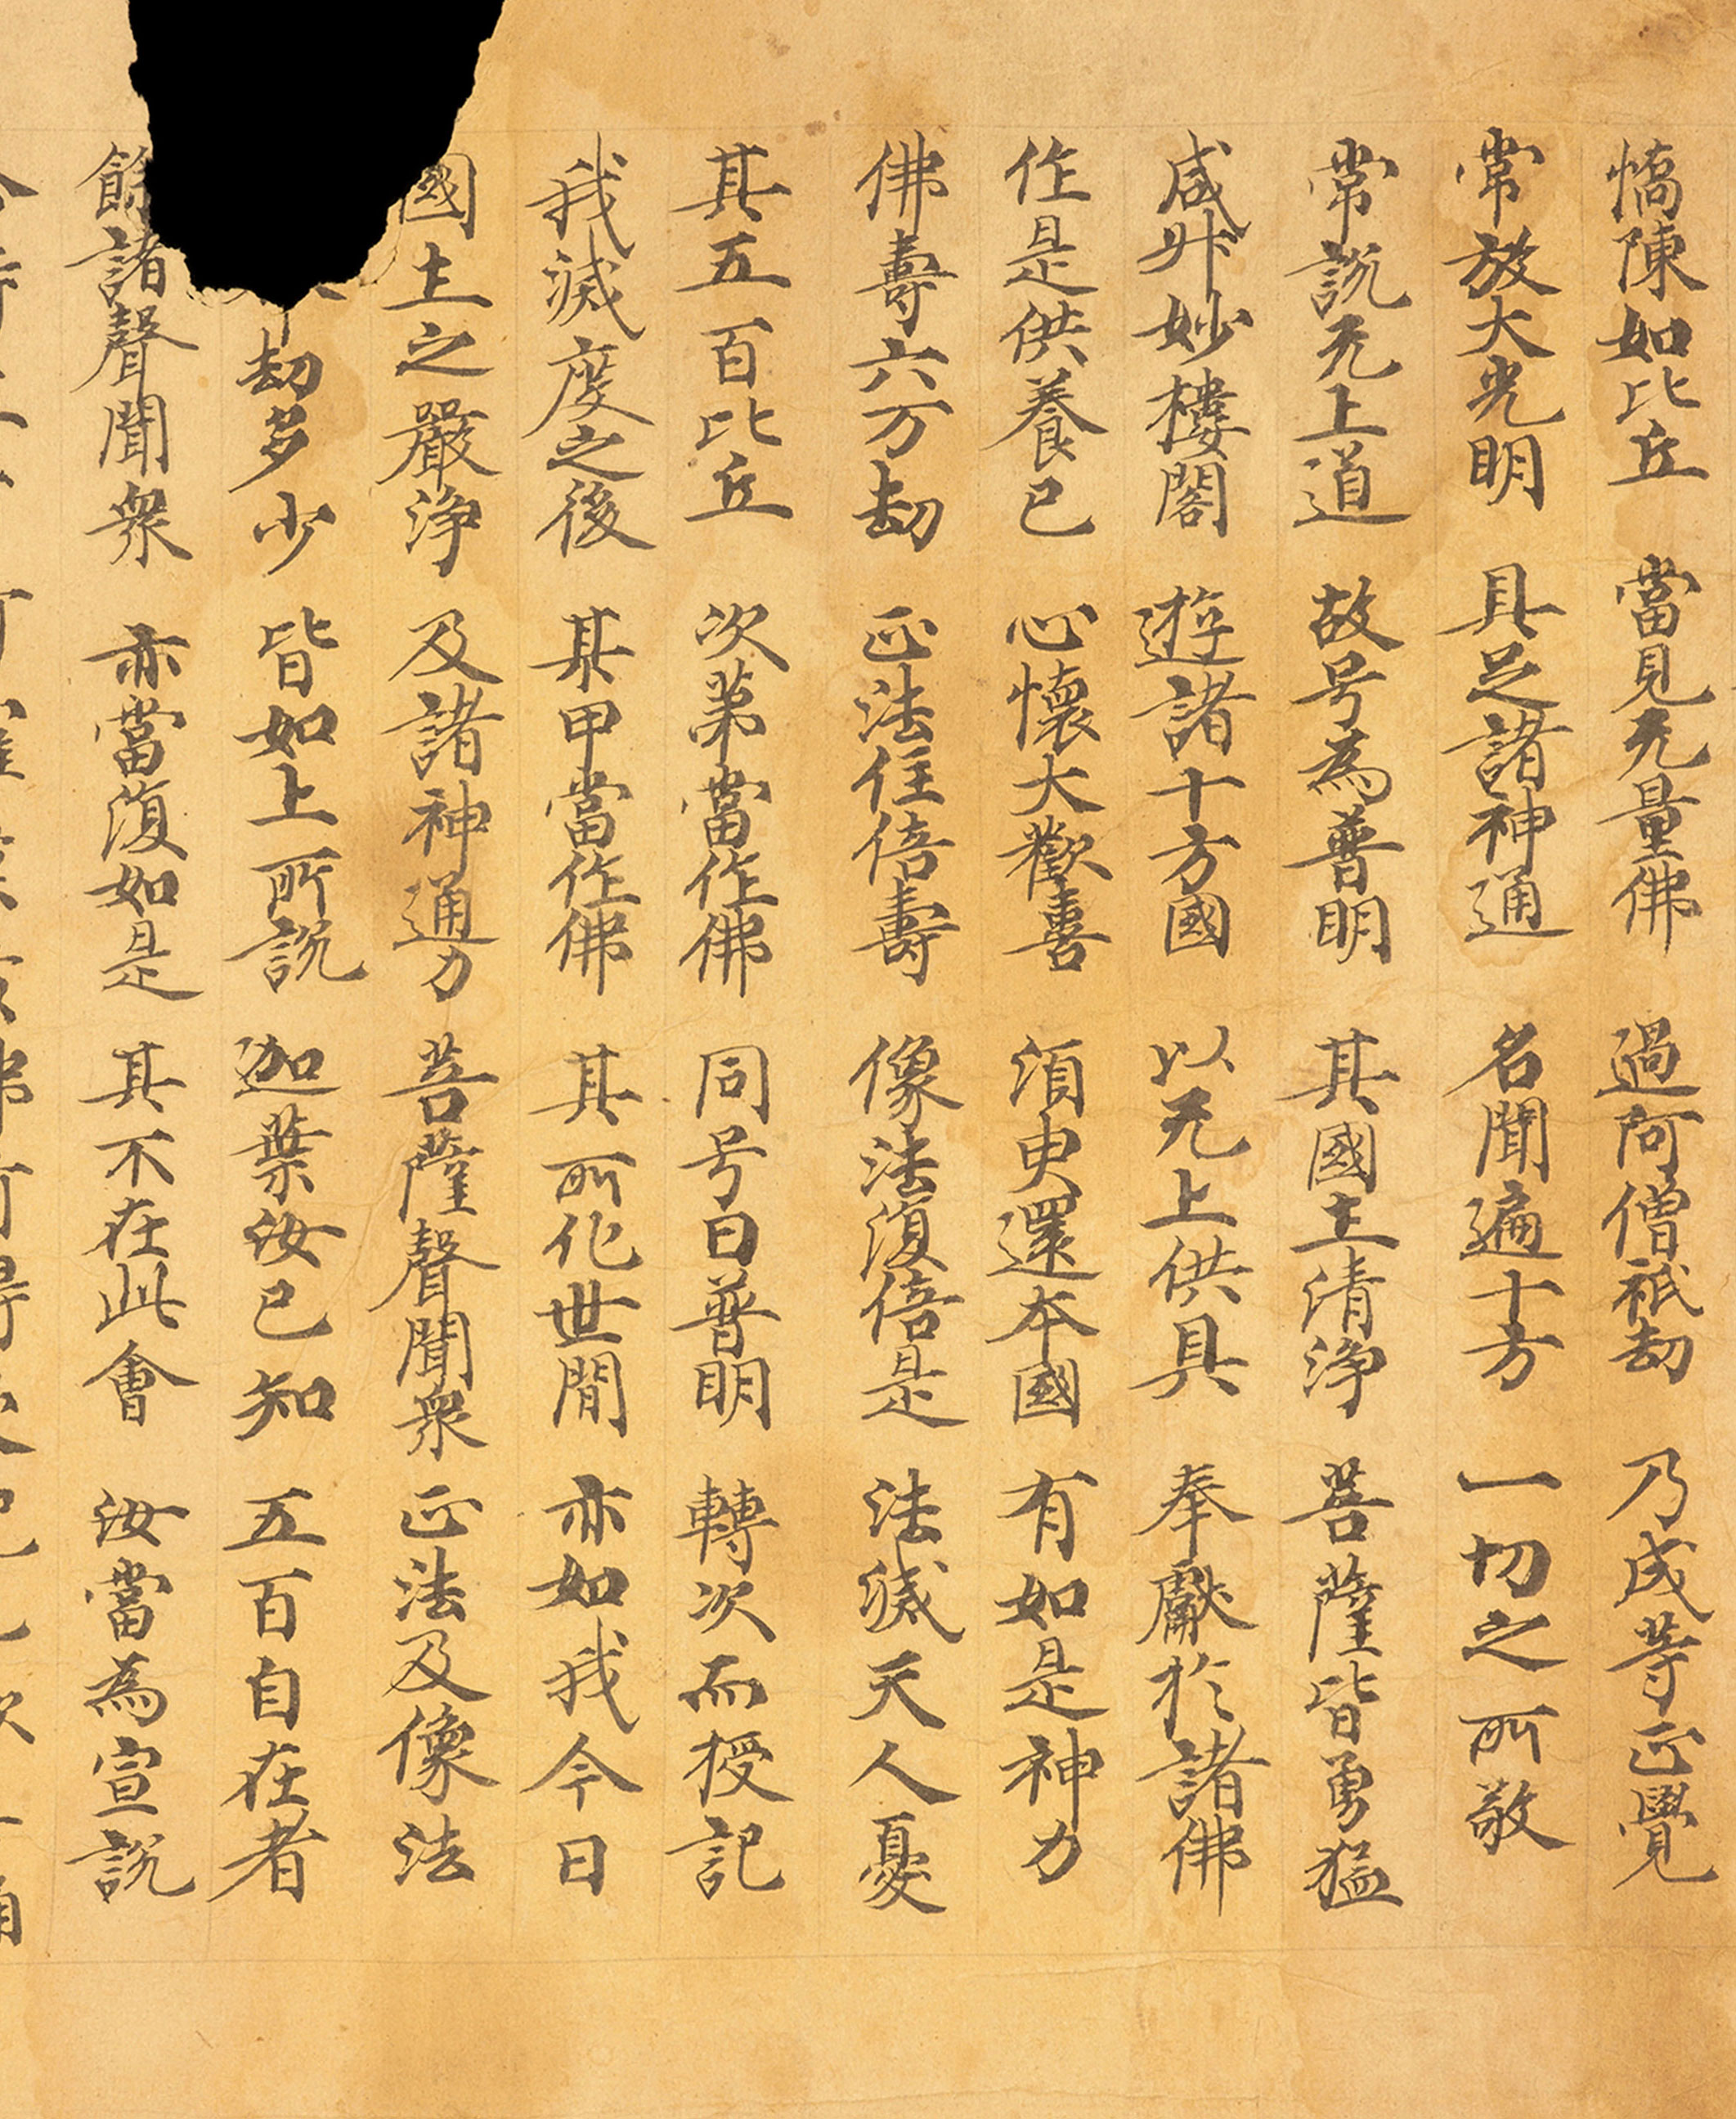 憍陳如比丘 當見无量佛 過阿僧祇劫 乃成等正覺
常放大光明 具足諸神通 名聞遍十方 一切之所敬
常說无上道 故号為普明 其國土清淨 菩薩皆勇猛
咸昇妙樓閣 遊諸十方國 以无上供具 奉獻於諸佛
作是供養已 心懷大歡喜 須臾還本國 有如是神力
佛壽六万劫 正法住倍壽 像法復倍是 法滅天人憂
其五百比丘 次第當作佛 同号曰普明 轉次而授記
我滅度之後 某甲當作佛 其所化世間 亦如我今日
國土之嚴淨 及諸神通力 菩薩聲聞衆 正法及像法
劫多少 皆如上所說 迦葉汝已知 五百自在者
餘諸聲聞衆 亦當復如是 其不在此會 汝當為宣說